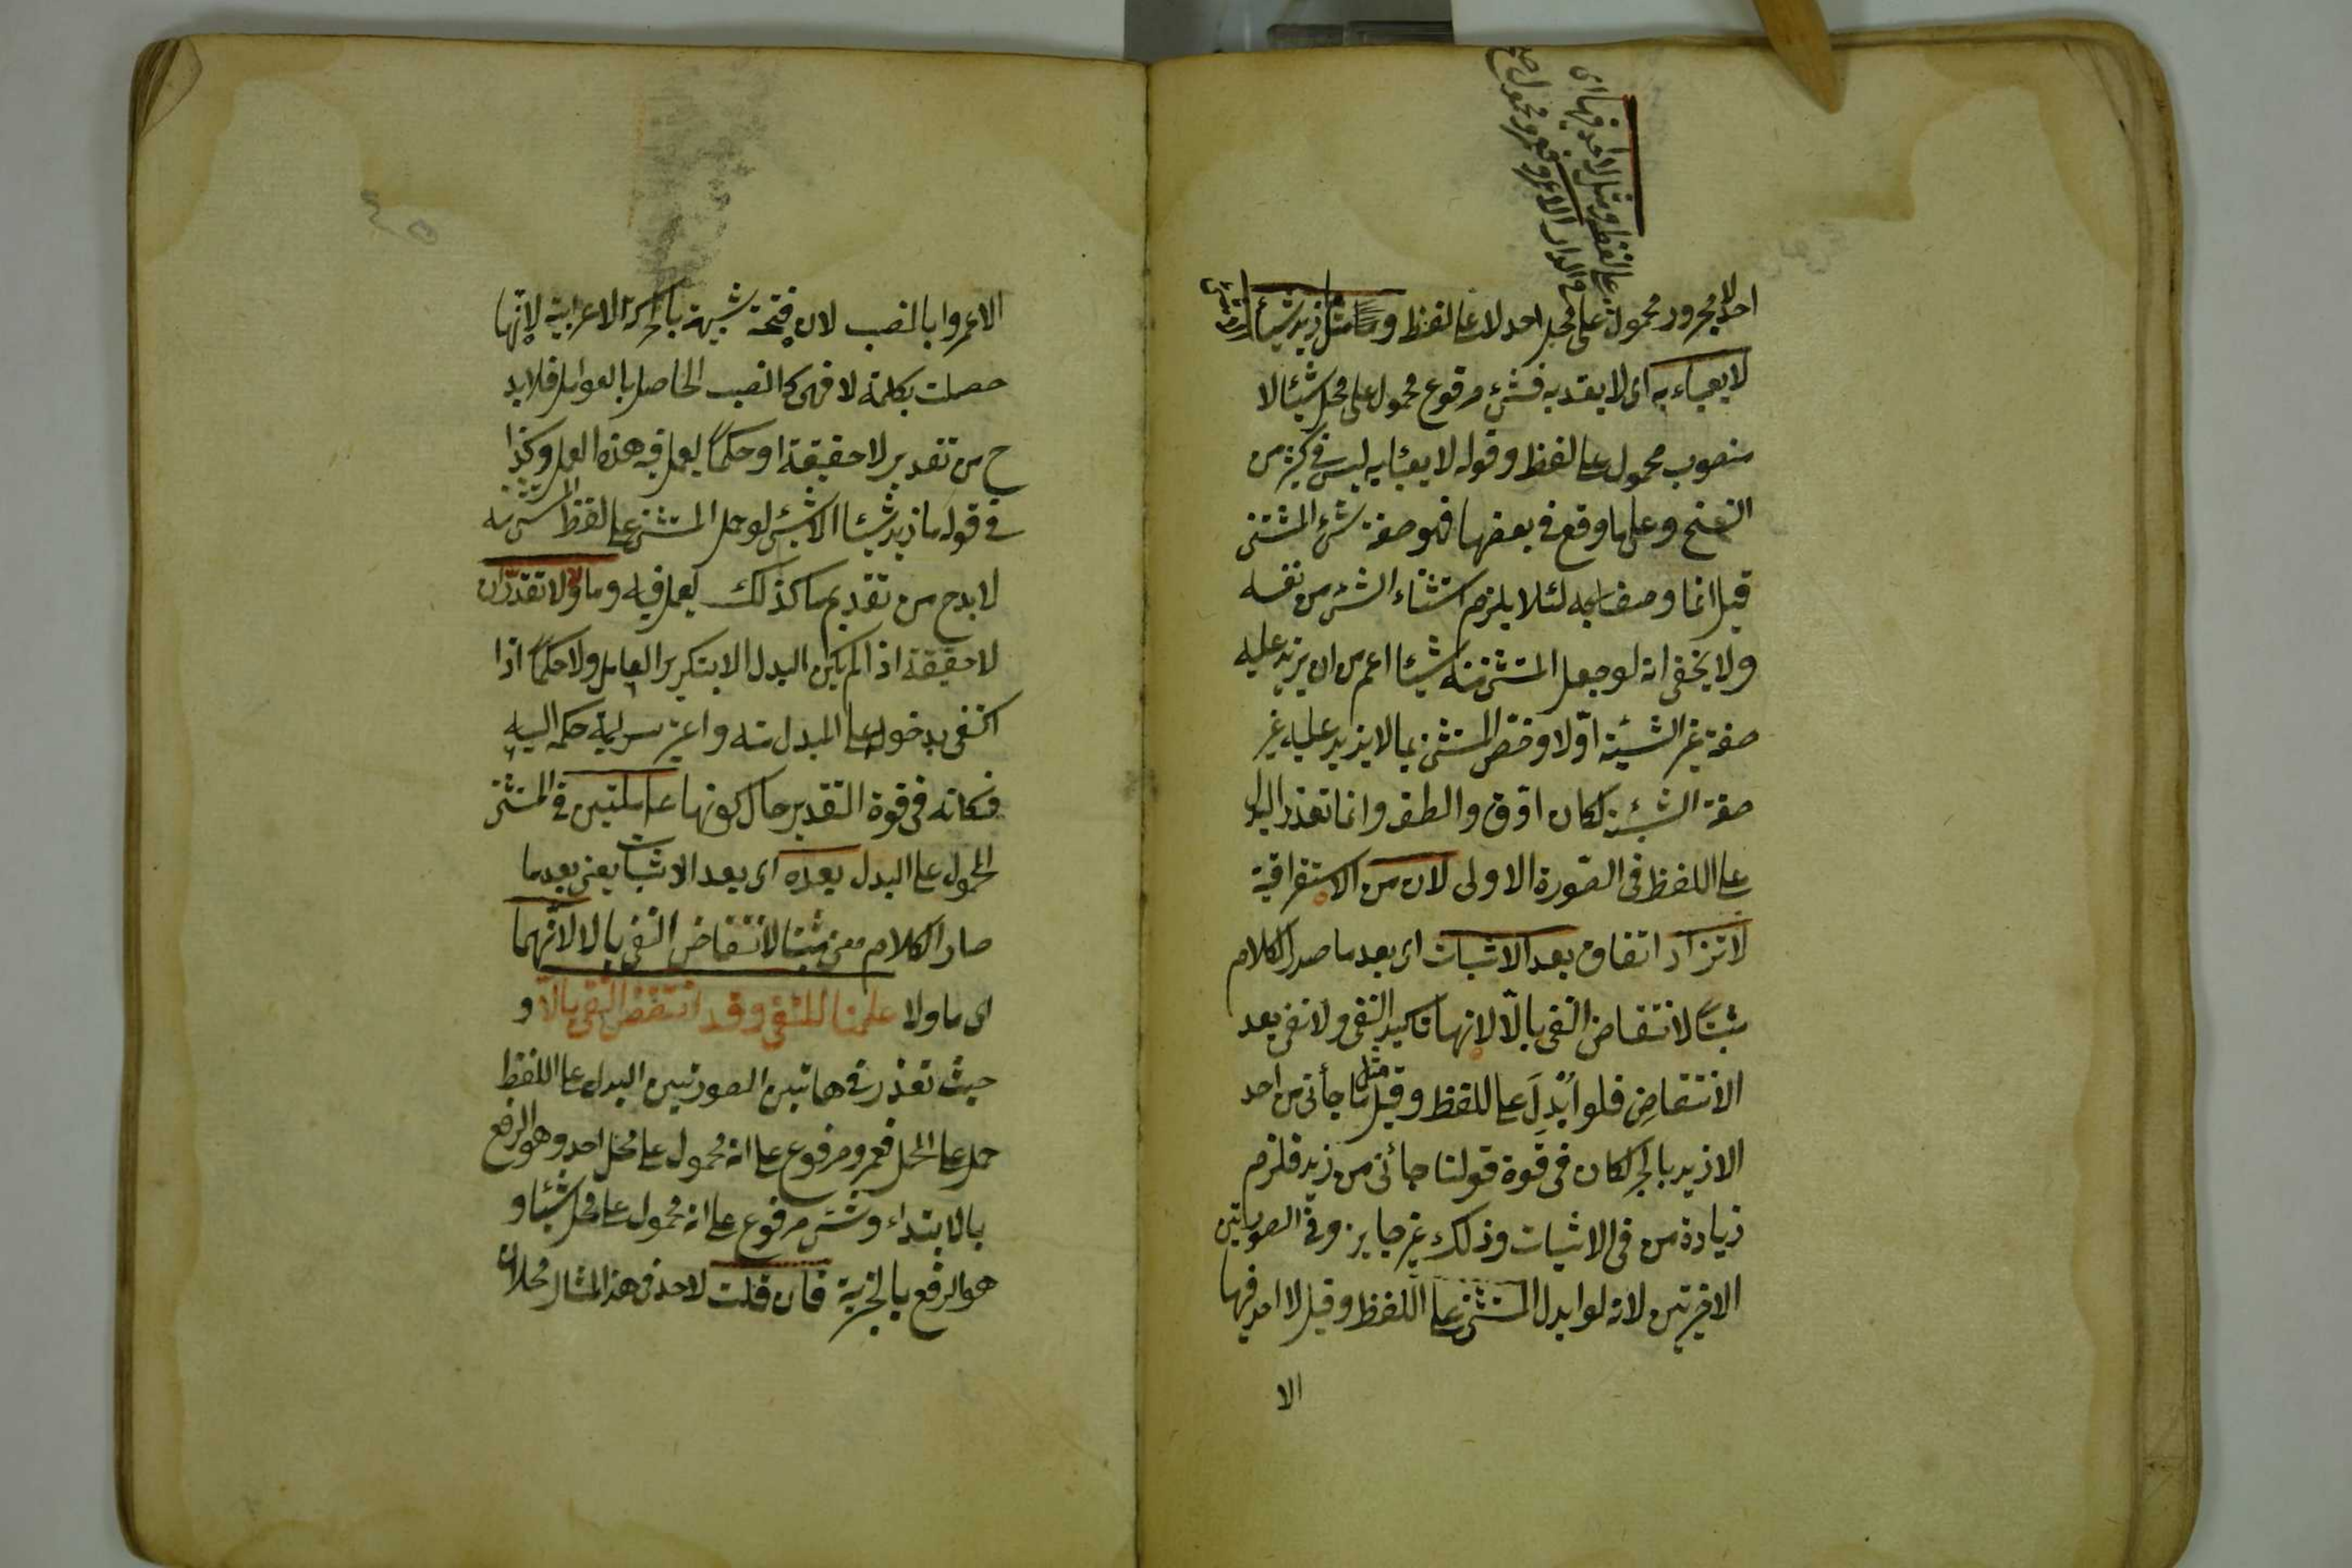 على اللفظ ومثل لا احد فيها اى
فى الدار الا عمرو فعمرو محمول
احد لا مجرور محمول على محل احد لا على لفظ و مثل ما زيد شيأ الا شئ
لا يعباء به اى لا يعتد به فشئ مرفوع محمول على محل شيئا لا
منصوب محمول على لفظ وقوله لا يعبئا به ليس فى كثير من
النسخ وعلى ما وقع فى بعضها فهو صفة شئ المستثنى
قيل انما وصفا به لئلا يلزم استثناء الشئ من نفسه
ولا يخفى انه لو جعل المستثنى منه شيئا اعم من ان يزيد عليه
صفة غير الشيئية اولا وخص المستثنى بما لا يزيد عليه غير
صفة الشيئية لكان ادق والطف وانما تعذر البدل
على اللفظ فى الصورة الاولى لان من الاستغراقية
لا تزاد اتفاق بعد الاثبات اى بعد ما صدر الكلام
مثبتا لانتقاض النفى بالا لانها تاكيد النفى ولا نفى بعد
الانتقاض فلو ابدل على اللفظ وقيل مثل ما جأنى من احد
الا زيد بالجر لكان فى قوة قولنا جائنى من زيد فلزم
زيادة من فى الاثبات وذلك غير جايز وفى الصورتين
الاخيرتين لانه لو ابدل المستثنى على اللفظ وقيل لا احد فيها
الا
الا عمروا بالنصب لان فتحة شبيهة بالحركة الاعرابية لانها
حصلت بكلمة لا فهى كالنصب الحاصل بالعوامل فلا بد
ح من تقدير لا حقيقة او حكما ليعمل فيه هذه العمل وكذا
فى قوله ما زيد شيئا الا شئ لو حمل المستثنى على لفظ المستثنى منه
لا بد ح من تقديم ما كذلك ليعمل فيه وما ولا لا تقدران
لا حقيقة اذا لم يكن البدل الا بتكرير العامل ولا حكما اذا
اكتفى بدخوله على المبدل منه واعتبر سراية حكمه اليه
فكانه فى قوة التقدير حال كونها عاملتين فى المستثنى
المحمول على البدل بعده اى بعد الاثبات يعنى بعد ما
صار الكلام معنى مثبتا لانتقاض النفى بالا لانهما
اى ما ولا عملتا للنفى وقد انتقض النفى بالا و
حيث تعذر فى هاتين الصورتين البدل على اللفظ
حمل على المحل فعمرو مرفوع على انه محمول على محل احد وهو الرفع
بالابتداء وشئ مرفوع على انه محمول على محل شيئا و
هو الرفع بالخبرية فان قلت لاحد فى هذا المثال محلان